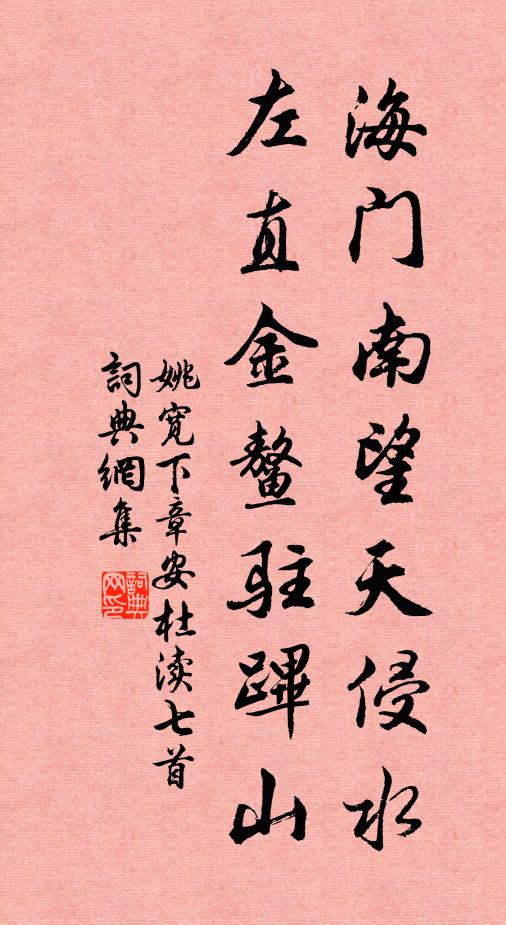 海门南望天侵水
左直金鳌驻蹕山
姚宽下章安杜渎七首
詞典網集
詞典
网印